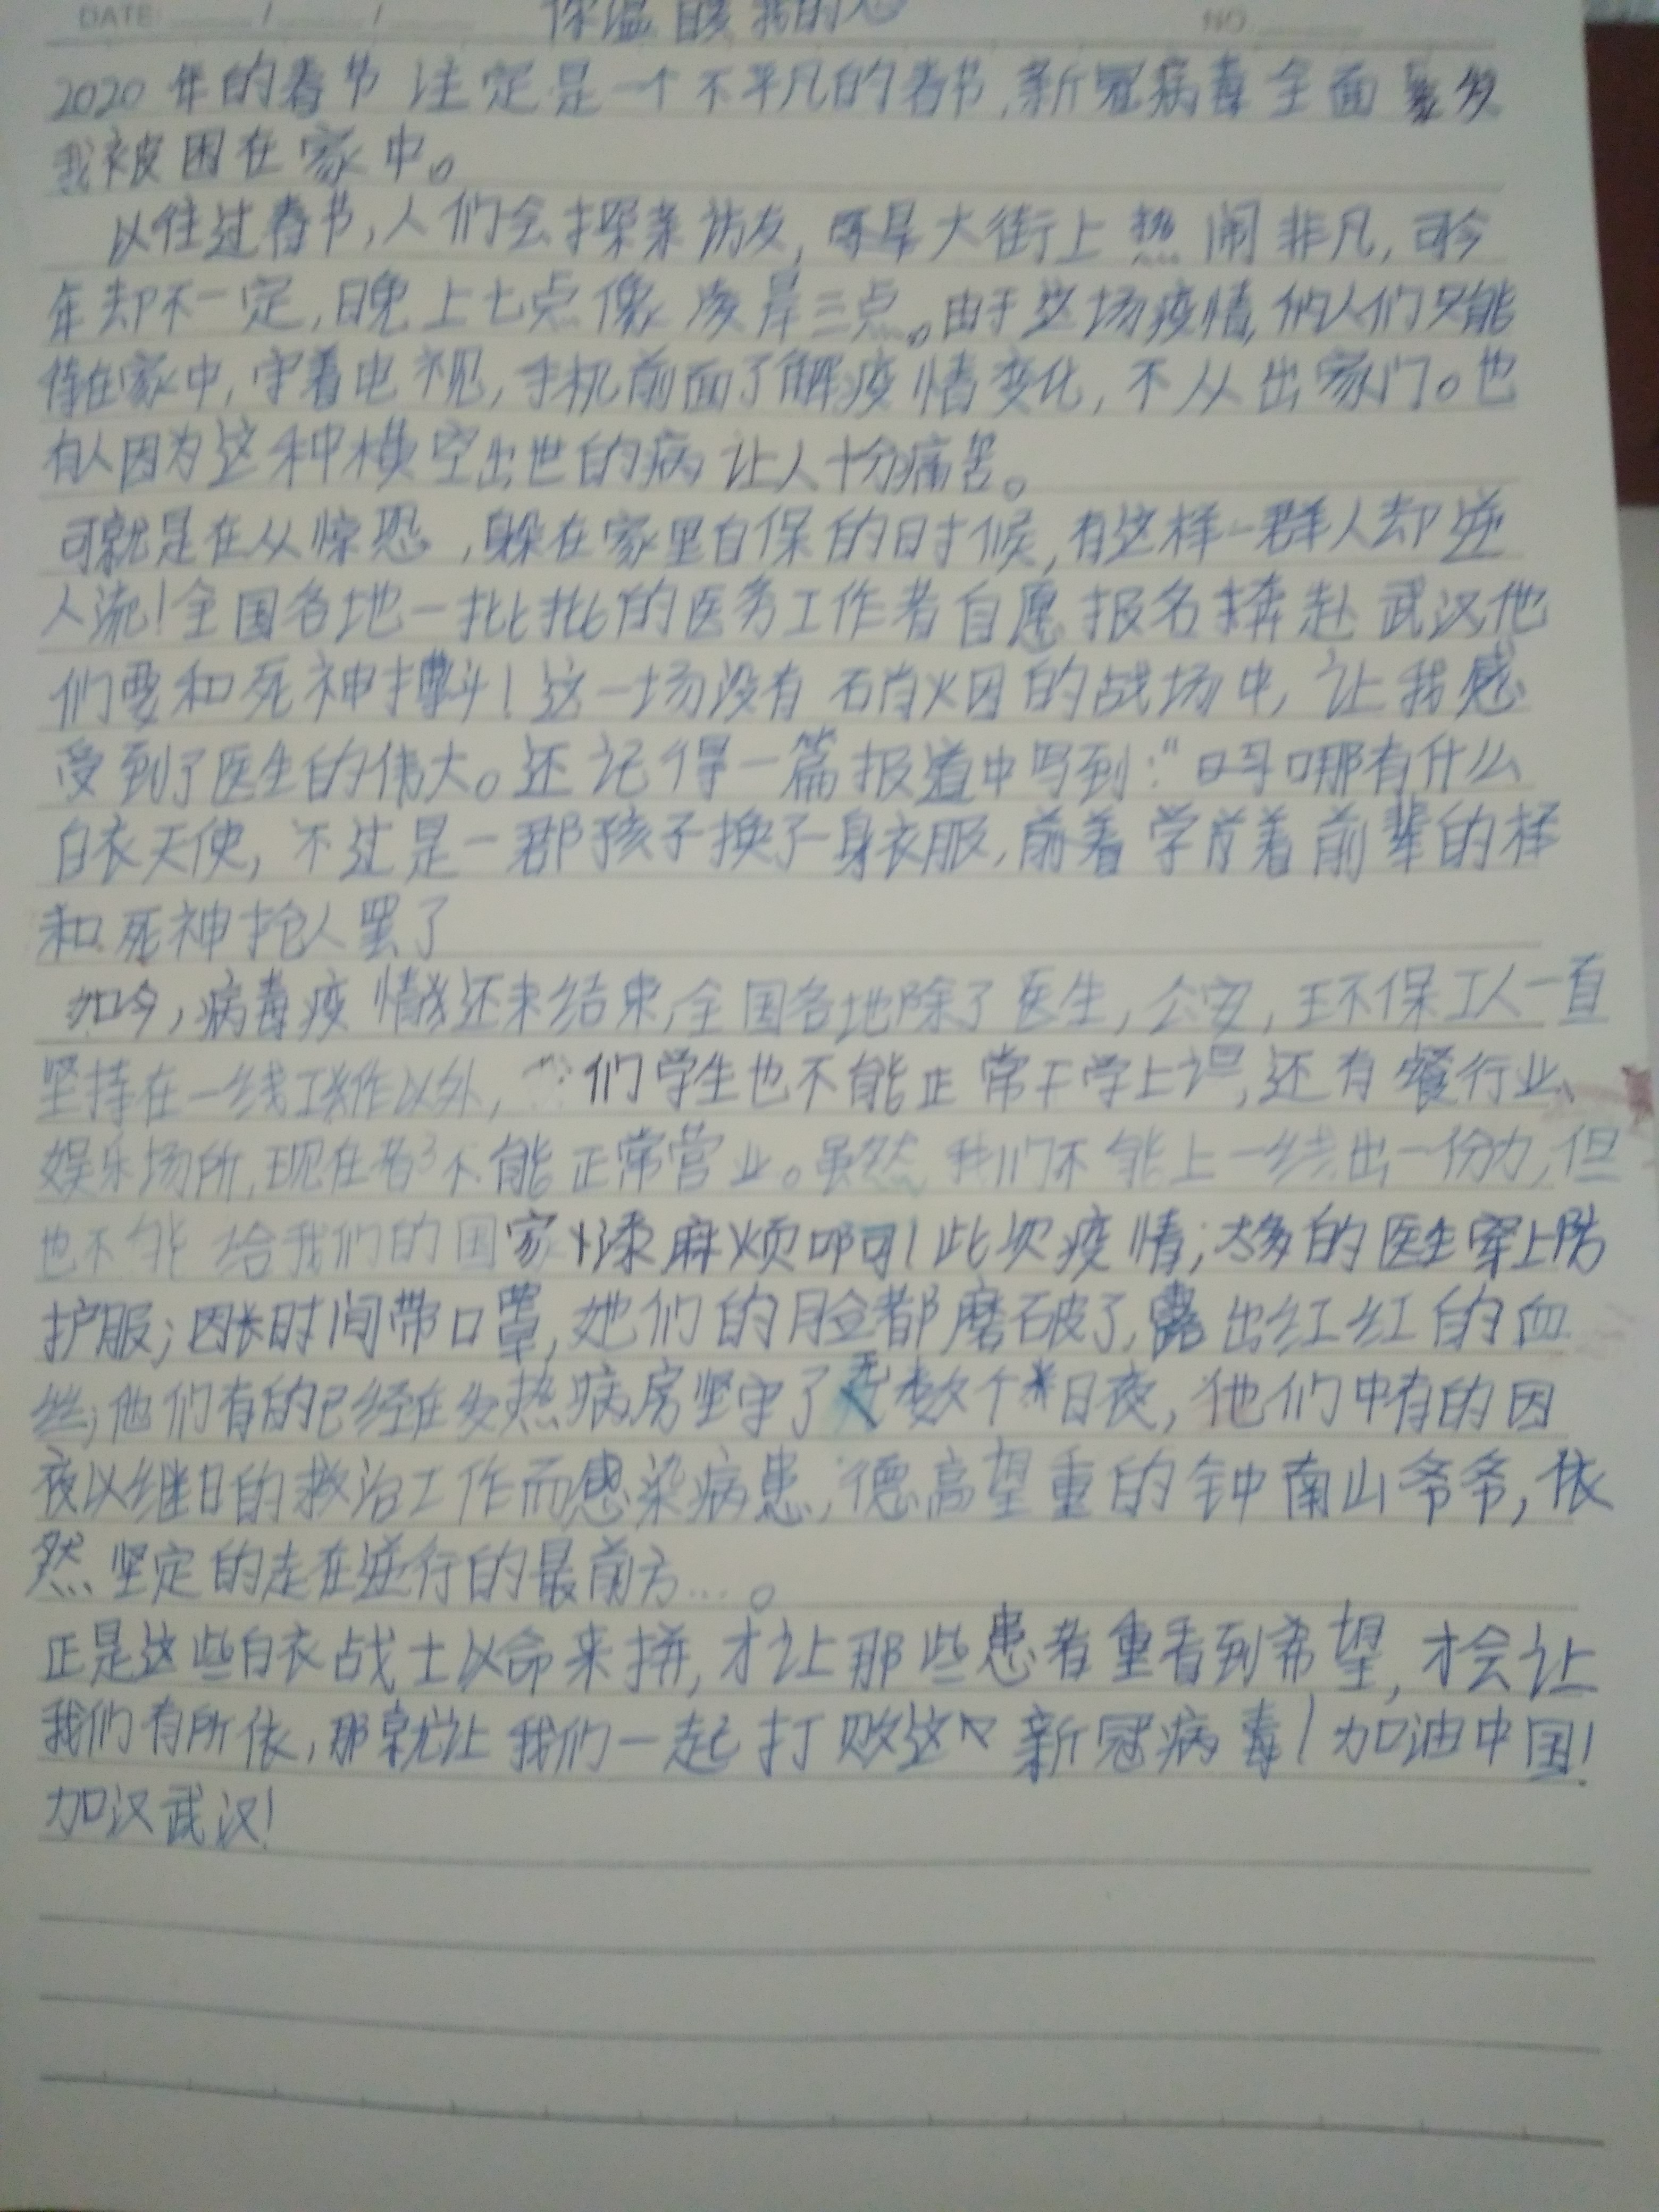 DATE: / / NO.
温 我的
2020年的春节注定是一个不平凡的春节,新冠病毒全面暴发
我被困在家中。
以往过春节,人们会探亲访友,大街上热闹非凡,可今
年却不一定,晚上七点像凌晨三点。由于这场疫情,人们只能
待在家中,守着电视,手机前面了解疫情变化,不从出家门。也
有人因为这种横空出世的病让人十分痛苦。
可就是在从惊恐,躲在家里自保的时候,有这样一群人却逆
人流!全国各地一批批的医务工作者自愿报名奔赴武汉他
们要和死神搏斗!这一场没有硝烟的战场中,让我感
受到了医生的伟大。还记得一篇报道中写到:“哪有什么
白衣天使,不过是一群孩子换了一身衣服,学着前辈的样
和死神抢人罢了
如今,病毒疫情还未结束,全国各地除了医生,公安,环保工人一直
坚持在一线工作以外,我们学生也不能正常开学上课,还有餐行业、
娱乐场所,现在都不能正常营业。虽然我们不能上一线出一份力,但
也不能给我们的国家添麻烦啊!此次疫情;太多的医生穿上防
护服;因长时间带口罩,她们的脸都磨破了,露出红红的血
丝;他们有的已经在发热病房坚守了无数个日夜,他们中有的因
夜以继日的救治工作而感染病患,德高望重的钟南山爷爷,依
然坚定的走在逆行的最前方...。
正是这些白衣战士以命来拼,才让那些患者重看到希望,才会让
我们有所依,那就让我们一起打败这个新冠病毒!加油中国!
加汉武汉!